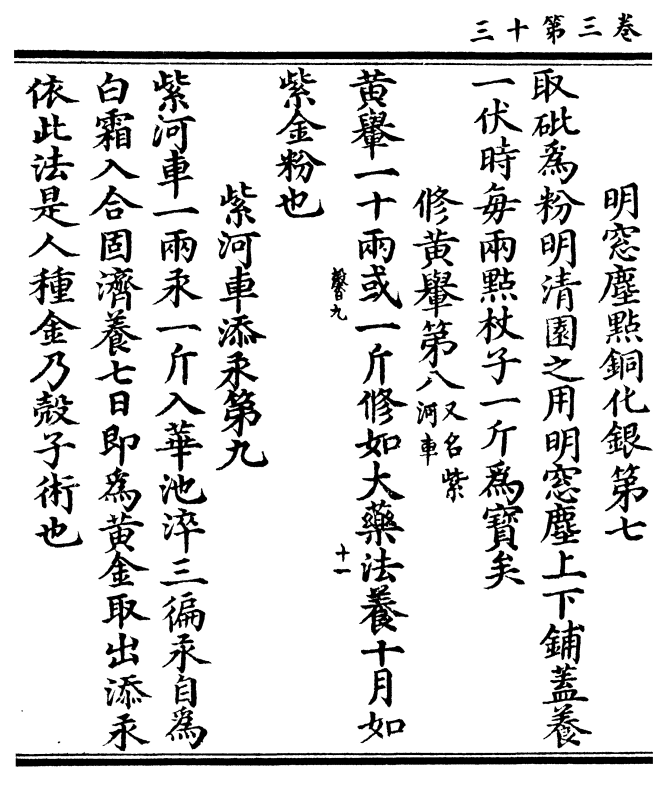 卷三第十三
明窓塵點銅化銀第七
取砒爲粉明清園之用明窓塵上下鋪蓋養
一伏時每兩點杖子一斤爲寶矣
修黃轝第八又名紫河車
黃轝一十兩或一斤修如大藥法養十月如
九 十一
紫金粉也
紫河車添汞第九
紫河車一兩汞一斤入華池淬三徧汞自爲
白霜入合固濟養七日即爲黃金取出添汞
依此法是人種金乃殼子術也